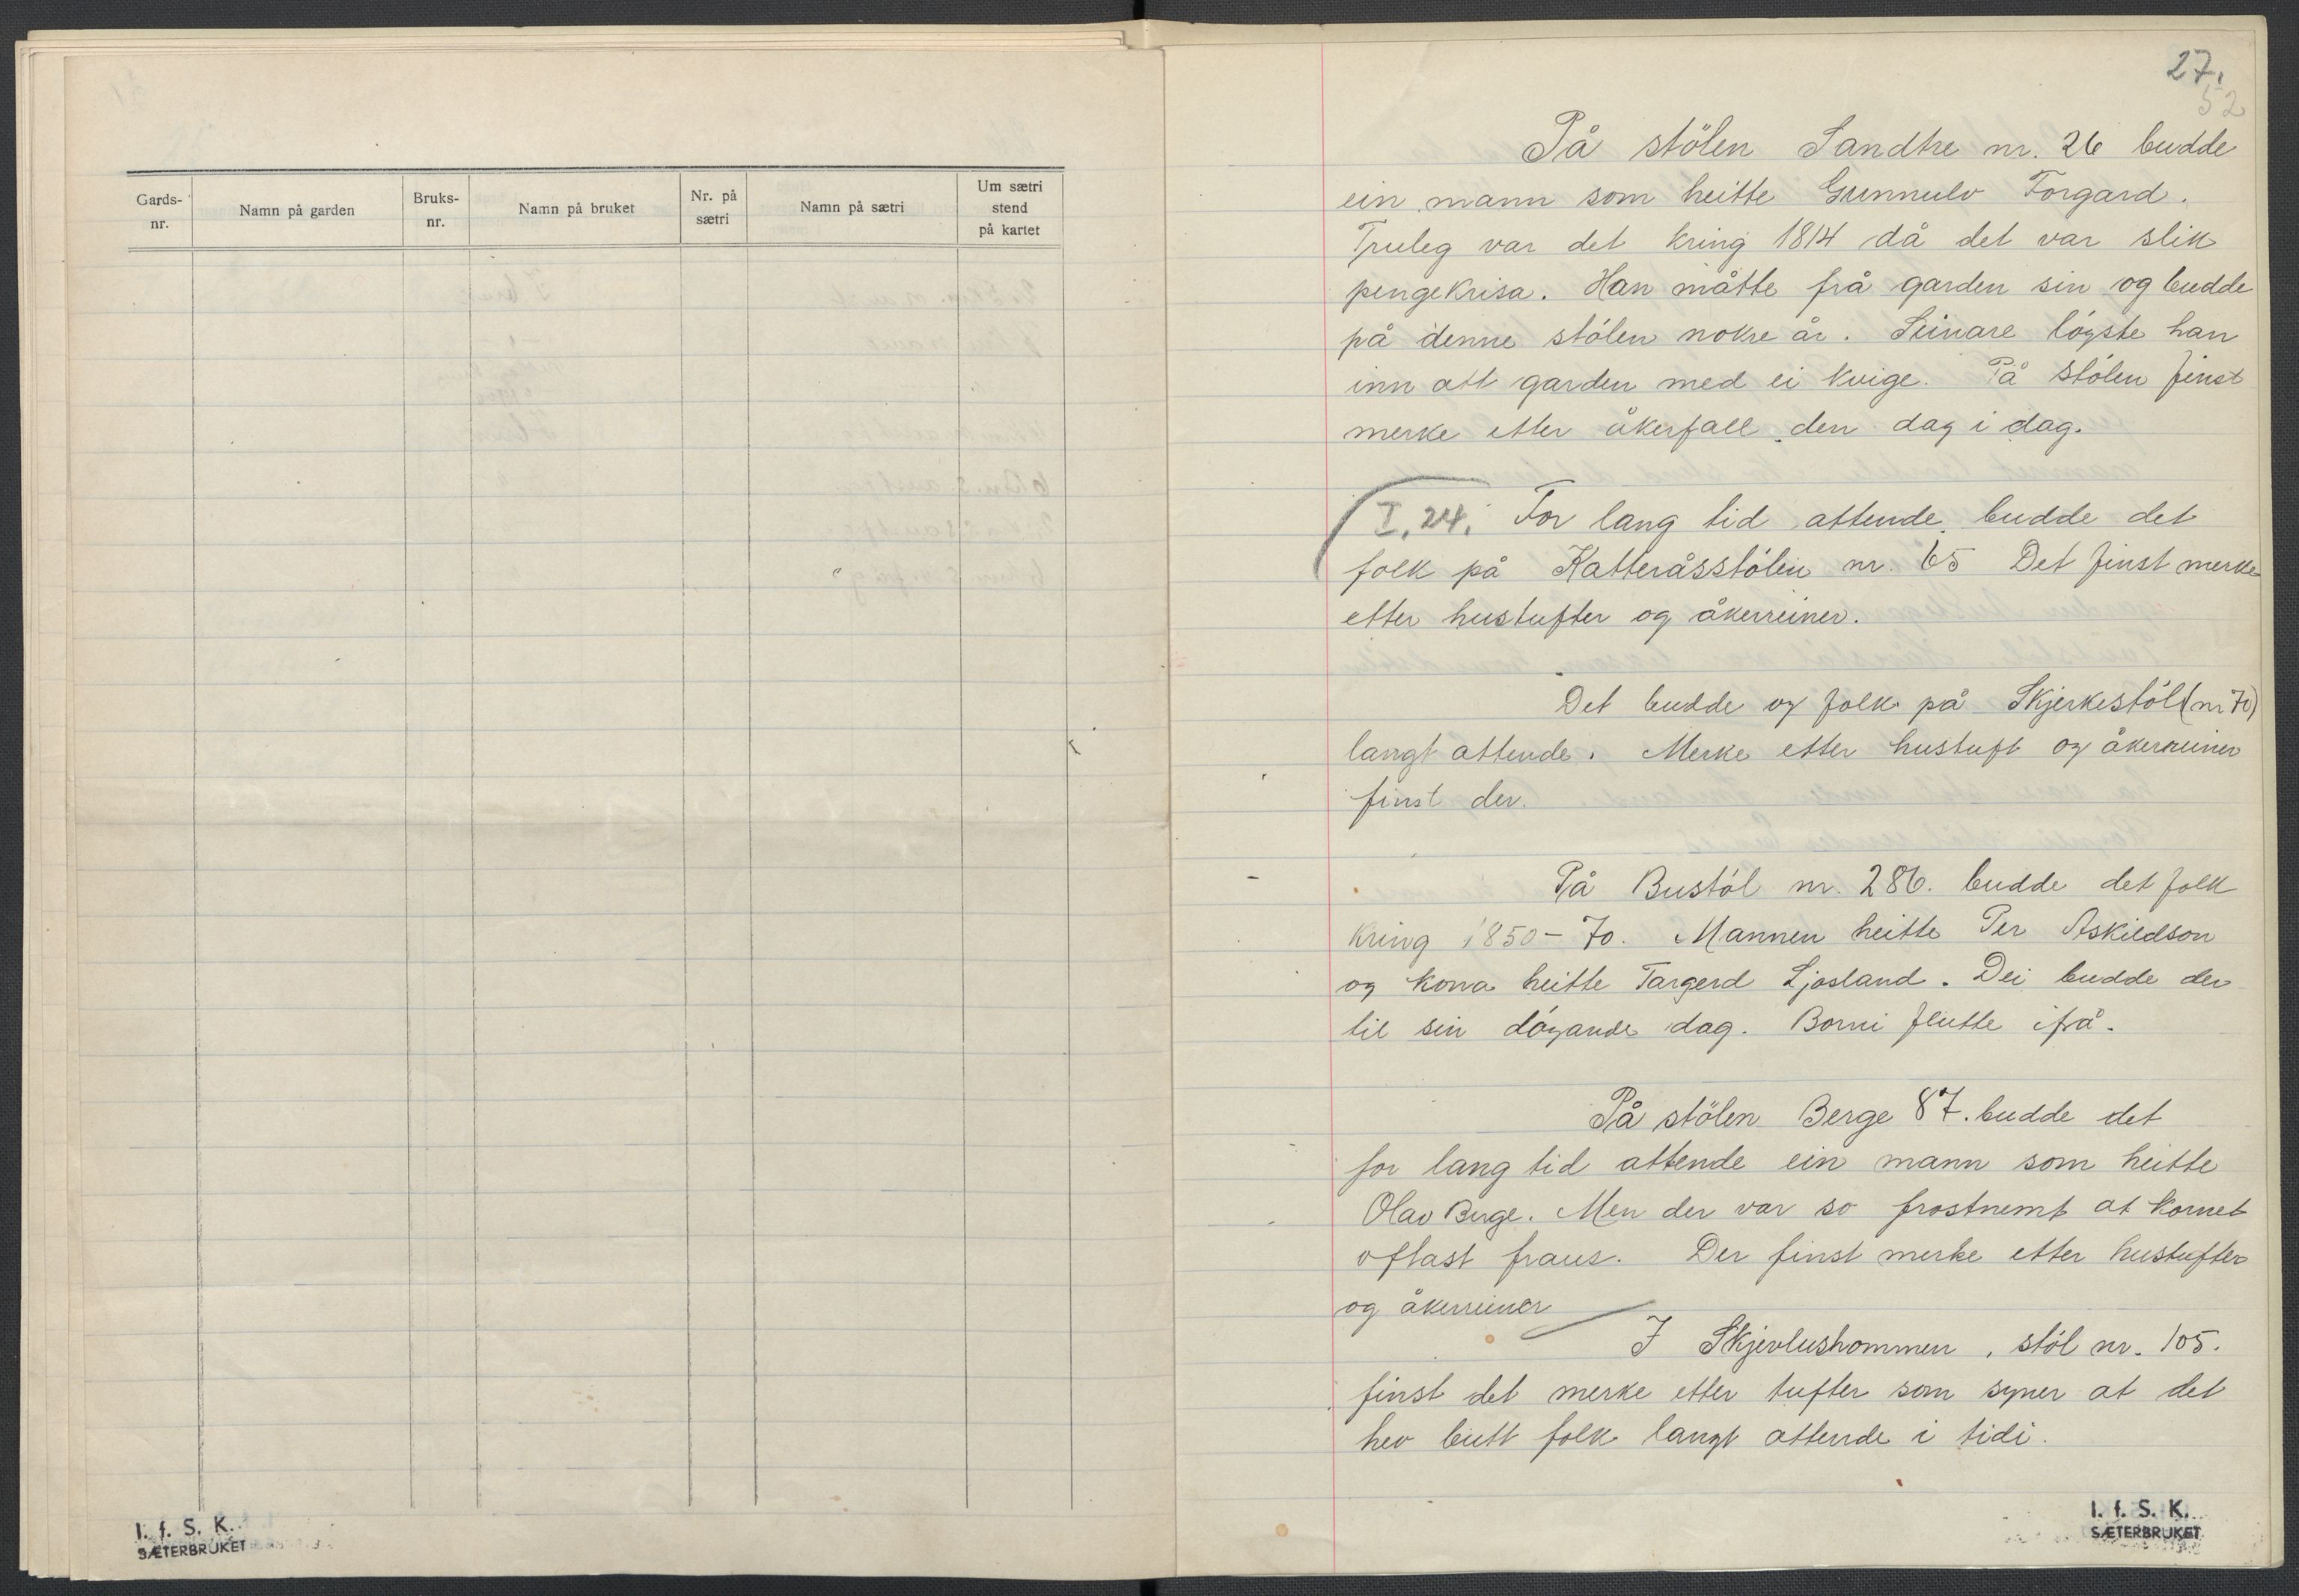 Gards-
nr.
Namn på garden
Bruks-
nr.
Namn på bruket
Nr. på
sætri
Namn på sætri
Um sætri
stend
på kartet
I. f. S. K.
SÆTERBRUKET
27.
52
På stölen Sandtre nr. 26 budde
ein mann som heitte Gunnulv Forgard.
Truleg var det kring 1814 då det var slik
pengekrisa. Han måtte frå garden sin og budde
på denne stölen nokre år. Seinare löyste han
inn att garden med ei kvige. På stölen finst
merke etter åkerfall den dag i dag.
I, 24. For lang tid attende budde det
folk på Katteråsstölen nr. 65 Det finst merke
etter hustufter og åkerreiner.
Det budde og folk på Skjerkestöl (nr 70)
langt attende. Merke etter hustuft og åkerreiner
finst der.
På Bustöl nr. 286. budde det folk
kring 1850-70. Mannen heitte Per Askildson
og kona heitte Targerd Ljosland. Dei budde der
til sin döyande dag. Borni flutte ifrå.
På stölen Berge 87. budde det
for lang tid attende ein mann som heitte
Olav Berge. Men der var so frostnemt at kornet
oftast fraus. Der finst merke etter hustufter
og åkerreiner
I Skjevlushommen, stöl nr. 105.
finst det merke etter tufter som syner at det
hev butt folk langt attende i tidi.
I. f. S. K.
SÆTERBRUKET